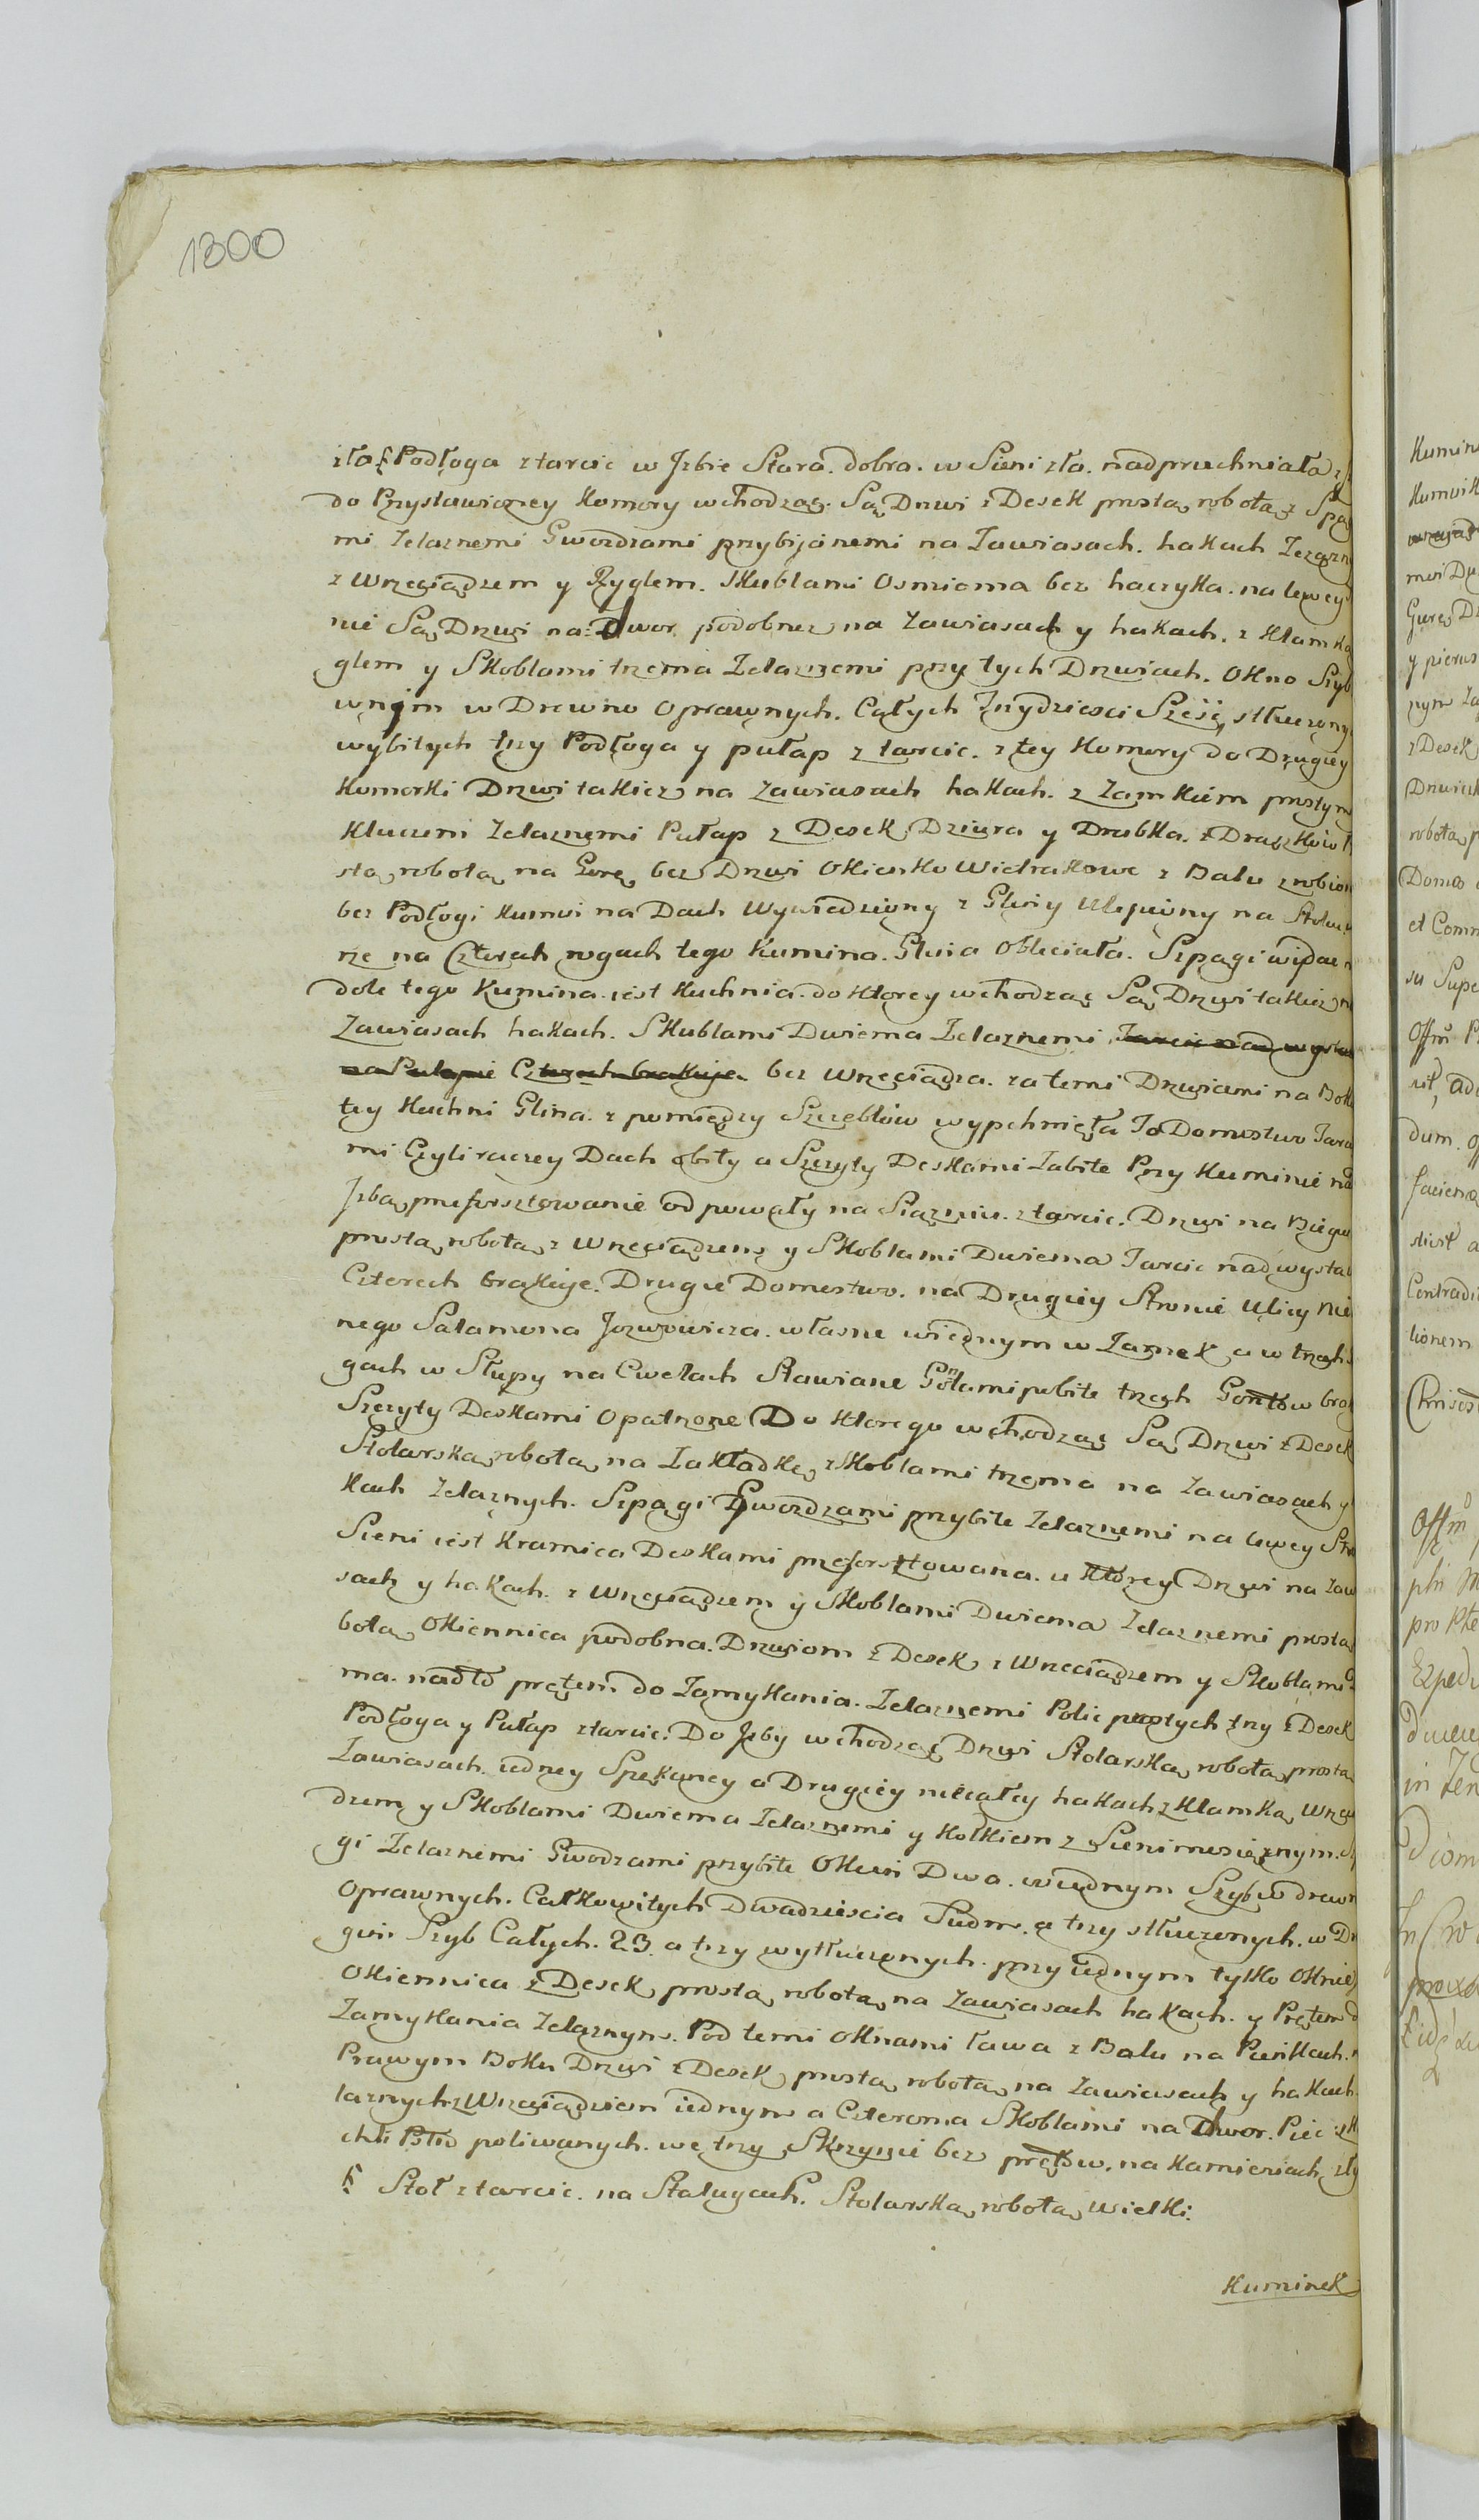 1300
zła § Podłoga ztarcic w Jzbie Stara. dobra. w Sieni zła. nadpruchniała
do Przystawioney Komory wchodząc. Są Drzwi z Desek prostą robotą z Szpą
mi Zelaznemi Gwozdzami przybijanemi na Zawiasach. hakach
z Wrzeciądzem y Ryglem. Skublami Osmioma bez haczyka. na lewey
nie Są Drzwi na Dwor podobnez na Zawiasach y hakach. z Klamką
glem y Skoblami trzema Zelaznemi przy tych Drzwiach. Okno Szyb
wnim w Drewno Oprawnych. Całych Trzydziesci Sześć, stłuczony
wybitych trzy Podłoga y pułap z tarcic. z tey Komory do Drugiey
Komorki Drzwi takiez na Zawiasach hakach. z Zamkiem prostym
Kluczem Zelaznemi Pułap z Desek Dziura y Drabka. z Drązkow
stą robotą na Gorę bez Drzwi Okienko Wiatrakowe z Balu zrobion
bez Podłogi Kumin na Dach Wywiedziony z Gliny Ulepiony na
rze na Czterech rogach tego Kumina. Glina Obleciała. Szpagi widać
dole tego Kumina iest Kuchnia do Ktorey wchodząc Są Drzwi takiez
Zawiasach hakach. Skublami Dwiema Zelaznemi Tarcic nad wysta
na Pułapie Czterech brakuje bez Wrzeciądza. za temi Drzwiami na Boku
tey Kuchni Glina. z pomiędzy Szczeblow wypchnięta To Domostwo Tarci
mi Czyli raczey Dach obity a Szczyty Deskami Zabite Przy Kuminie nad
Jzbą, przeforsztowanie od powały na Siązniu. ztarcic. Drzwi na Biegu
prostą robotą z Wrzeciądzem y Skoblami Dwiema Tarcic nad wysta
Czterech brakuje. Drugie Domostwo. na Drugiey Stronie Ulicy Nie
nego Salamona Jozwowicza. własne wiednym w Zamek a w trzech
gach w Słupy na Cwelach Stawiane Gontami pobite trzech Gontow brak
Szczyty Deskami Opatrzone Do Ktorego wchodząc Są Drzwi z Desek
Stolarską robotą na Zakładkę z Skoblami trzema na Zawiasach y
Kach Zelaznych. Szpągi Gwozdzami przybite Zelaznemi na lewey Stro
Sieni iest Kramica Deskami przeforsztowana. u Ktorey Drzwi na Zaw
sach y hakach. z Wrzeciądzem y Skoblami Dwiema Zelaznemi prostą
botą Okiennica podobna. Drzwiom z Desek z Wrzeciądzem y Skoblami
ma. nadto prętem do Zamykania. Zelaznemi Polic prostych trzy z Desek
Podłoga y Pułap ztarcic. Do Jzby wchodząc Drzwi Stolarską robotą prostą
Zawiasach iedney Spękaney a Drugiey niecałey hakach z Klamką, Wrzę
dzem y Skoblami Dwiema Zelaznemi y Kołkiem z Sieni mosięznym.
gi Zelaznemi Gwodzami przybite Okna Dwa. wiednym Szyb w drewn
Oprawnych. Całkowitych Dwadziescia Siedm. a trzy stłuczonych. w Dr
gim Szyb Całych. 23. a trzy wytłuczonych. przy iednym tylko Oknie
Okiennica z Desek prostą robotą na Zawiasach hakach. y Prętem d
Zamykania Zelaznym. Pod temi Oknami Ława z Balu na Pieńkach.
Prawym Boku Drzwi z Desek prostą robotą na Zawiasach y hakach
laznych z Wrzeciądzem iednym a Czteroma Skoblami na Dwor. Piec
poliwanych. we trzy Skrzynie bez prętow. na Kamieniach, zły
§ Stoł ztarcic. na Stalugach. Stolarską robotą wielki.
Kuminek
Kumin
Gurę
y pierws
z Desek
robotą
Domo
et Comm
su Supe
dum.
Contradi
tionem
in